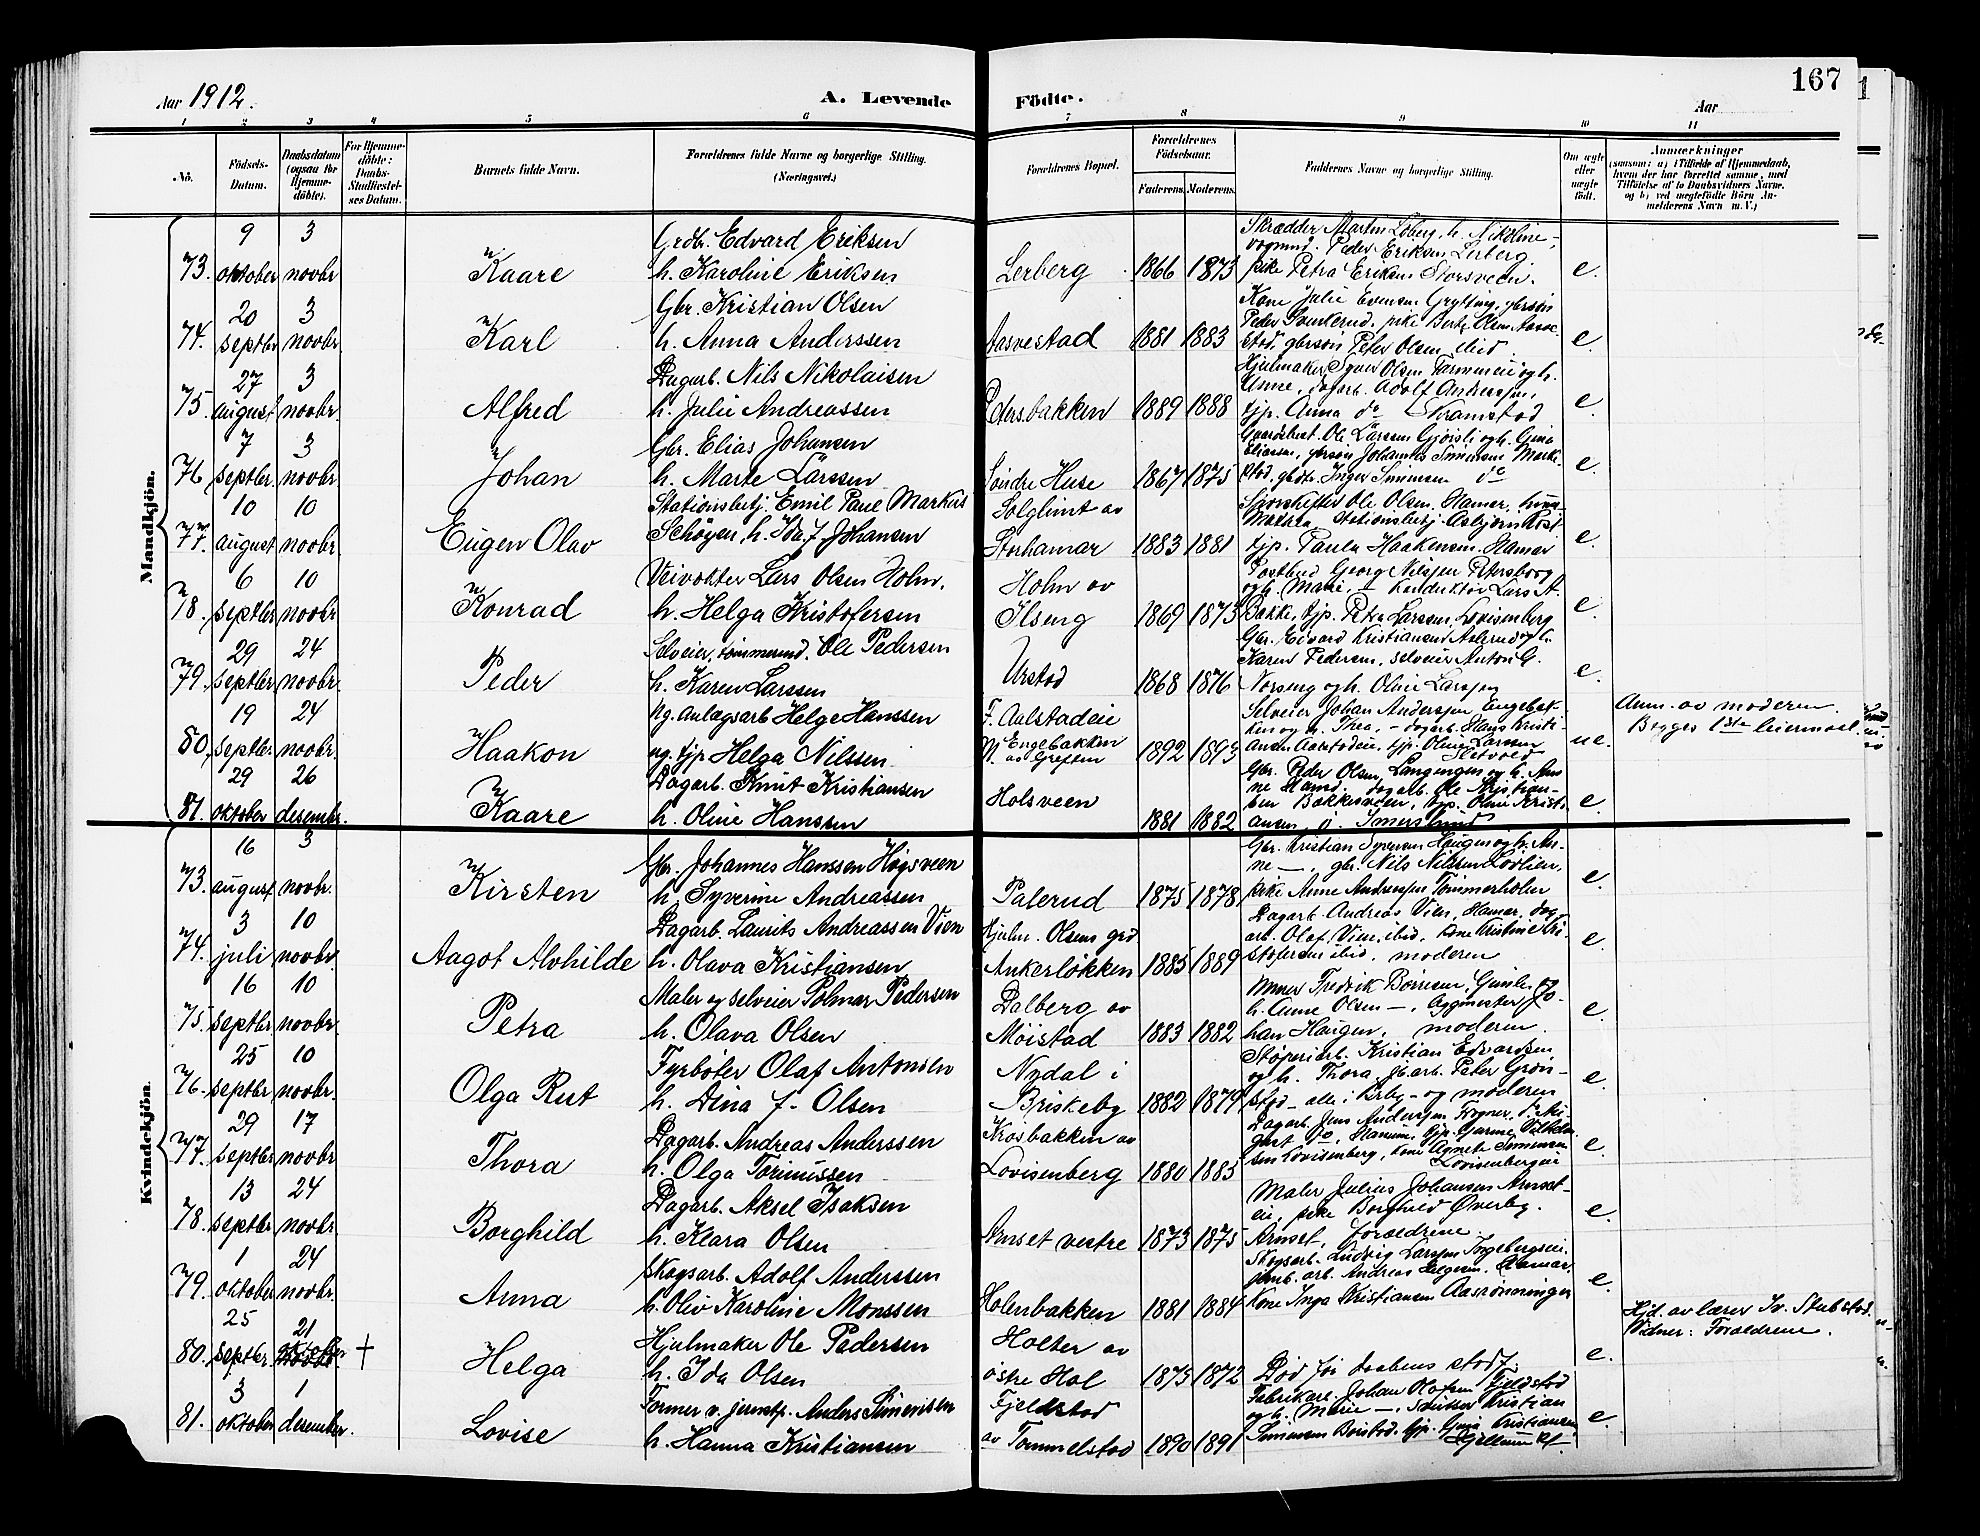 Aar 1912.
A. Levende
Födte.
Aar
167
1 2 3 4 5 6 7 8 9 10 11
No.
Födsels-Datum.
Daabsdatum (ogsaa for Hjemmedöbte).
For Hjemmedöbte: Daabs-Stadfæstelses Datum.
Barnets fulde Navn.
Forældrenes fulde Navne og borgerlige Stilling. (Næringsvei.)
Forældrenes Bopæl.
Forældrenes Födselsaar.
Faderens. Moderens.
Faddernes Navne og borgerlige Stilling.
Om ægte eller uægte födt.
Anmærkninger (saasom: a) i Tilfælde af Hjemmedaab, hvem der har forrettet samme, med Tilföielse af to Daabsvidners Navne. og b) ved uægtefödte Börn Anmelderens Navn m. V.)
Mandkjön.
73. 9 oktober 3 novbr Kaare Grdbr. Edvard Eriksen h. Karoline Eriksen Lerberg 1866 1873 Skrædder Martin Löberg, h. Nikoline -, vognmd. Peder Eriksen Lerberg, pike Petra Eriksen Storsveen. e.
74. 20 septbr 3 novbr. Karl Gbr. Kristian Olsen h. Anna Anderssen Aasvestad 1881 1883 Kone Julie Evensen Grytting, gbrsön Peder, pike Olsen, gbrsön Peter Olsen ibid. e.
75. 27 august 3 novbr. Alfred Dagarb. Nils Nikolaisen h. Julie Andreassen Pedersbakken 1889 1888 Hjulmaker Syver Olsen og h. Unne, dagarb. Adolf Anderssen, tjp. Anna do e.
76. 7 septbr. 3 novbr. Johan Gbr. Elias Johansen h. Marte Larssen Söndre Huse 1867 1875 Ole Larssen og h. Gina Eliassen, gbrsön Johannes Simensen, gbdtr. Inger Simensen do e.
77. 10 august 10 novbr. Eugen Olav Stationsbetj. Emil Paul Markus Schöyen, h. Ida f. Johansen Solglimt av Storhamar 1883 1881 Sporskifter Ole Olsen, Hamar, Stationsbetj. Asbjörn, tjp. Paula Haakensen, Hamar e.
78. 6 septbr 10 novbr Konrad Veivokter Lars Olsen Holm, h. Helga Kristofersen Holm av Ilseng 1869 1873 Postbud Georg Nilssen Petersborg og h. Marie, - Konduktör Lars A. Bakke, tjp. Petra Larssen, Lovisenberg e.
79. 29 septbr 24 novbr. Peder Selveier, tömmermd. Ole Pedersen h. Karen Larssen Urstad 1868 1876 Gbr. Edvard Kristiansen og h. Karen Pedersen, selveier Anton G. Norseng og h. Oline Larssen e.
80. 19 septbr. 24 novbr. Haakon Ug. anlægsarb. Helge Hanssen ug. tjp. Helga Nilssen F. Aalstadeie M. Engebakken av Greften 1892 1893 Selveier Johan Anderssen Engebakken og h. Thea, - dagarb. Hans Kristiansen, tjp. Oline Larssen ue. Anm. av moderen. Begges 1ste leiermaal.
81. 29 oktober 26 desembr. Kaare Dagarb. Knut Kristiansen h. Oline Hanssen Holsveen 1881 1882 Gbr. Peder Olsen, dagarb. Ole Kristiansen Bakkesveen, tjp. Oline Kristiansen, e.
Kvindekjön.
73. 16 august 3 novbr. Kirsten Gbr. Johannes Hanssen Högsveen h. Syverine Andreassen Palerud 1875 1878 Gbr. Kristian Syversen Haugen og h. Anne -, gbr. Nils Nilssen Lodlien, pike Anne Andreassen Tömmerholen e.
74. 3 juli 10 novbr. Aagot Alvhilde Dagarb. Laurits Andreassen Vien h. Olava Kristiansen Hjulm. Olsens grd Ankerlökken 1885 1889 Dagarb. Andreas Vien, Hamar, dagarb. Olaf Vien, ibid, kone Kristine Kristofersen ibid, moderen e.
75. 16 septbr. 10 novbr. Petra Maler og selveier Polmar Pedersen h. Olava Olsen Dalberg av Möistad 1883 1882 Murer Fredrik Börresen, Gimle, og h. Anne Olsen -, Bygmester Johan Haugen, moderen. e.
76. 25 septbr 10 novbr. Olga Rut Fyrböter Olaf Antonsen h. Dina f. Olsen Nydal i Briskeby 1882 1879 Stöperiarb. Kristian Edvardsen og h. Thora, jb.arb. Peter Grönstad - alle i Kirby - og moderen e.
77. 29 septbr 17 novbr Thora Dagarb. Andreas Anderssen h. Olga Torinussen Krosbakken av Lovisenberg 1880 1885 Dagarb. Jens Anderssen Frogner, Lovisenberg, kone Agnete Simensen Lovisenbergeie e.
78. 13 septbr 24 novbr. Borghild Dagarb. Aksel Isaksen h. Klara Olsen Arnset vestre 1873 1875 Maler Julius Johansen Arnseteie, pike Borghild Överby, Arnset, forældrene. e.
79. 1 oktober 24 novbr. Anna Skogsarb. Adolf Anderssen h. Oliv Karoline Monssen Holmbakken 1881 1884 Skogsarb. Ludvig Larssen Ingebergseie, jernb. arb. Andreas Elgesen, Hamar, Kone Inga Kristiansen Aasrönningen e.
80. 25 septbr. 21 + Helga Hjulmaker Ole Pedersen h. Ida Olsen Holter av östre Hol 1875 1872 Död för daabens stadf. e. Hjd. av lærer Iv. Stubstad. Vidner: Forældrene.
81. 3 oktober 1 desember. Lovise Former v. jernstp. Anders Simensen h. Hanna Kristiansen Fjeldstad av Tommelstad 1890 1891 Fabrikarb. Johan Olafsen Fjeldstad og h. Marie -, Snikker Kristian Simensen, tjp. Kristiansen e.